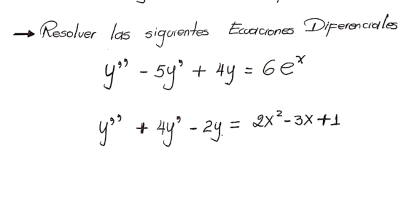 → Resolver las siguientes Ecuaciones Diferenciales
y'' - 5y' + 4y = 6e^x
y'' + 4y' - 2y = 2x² - 3x + 1